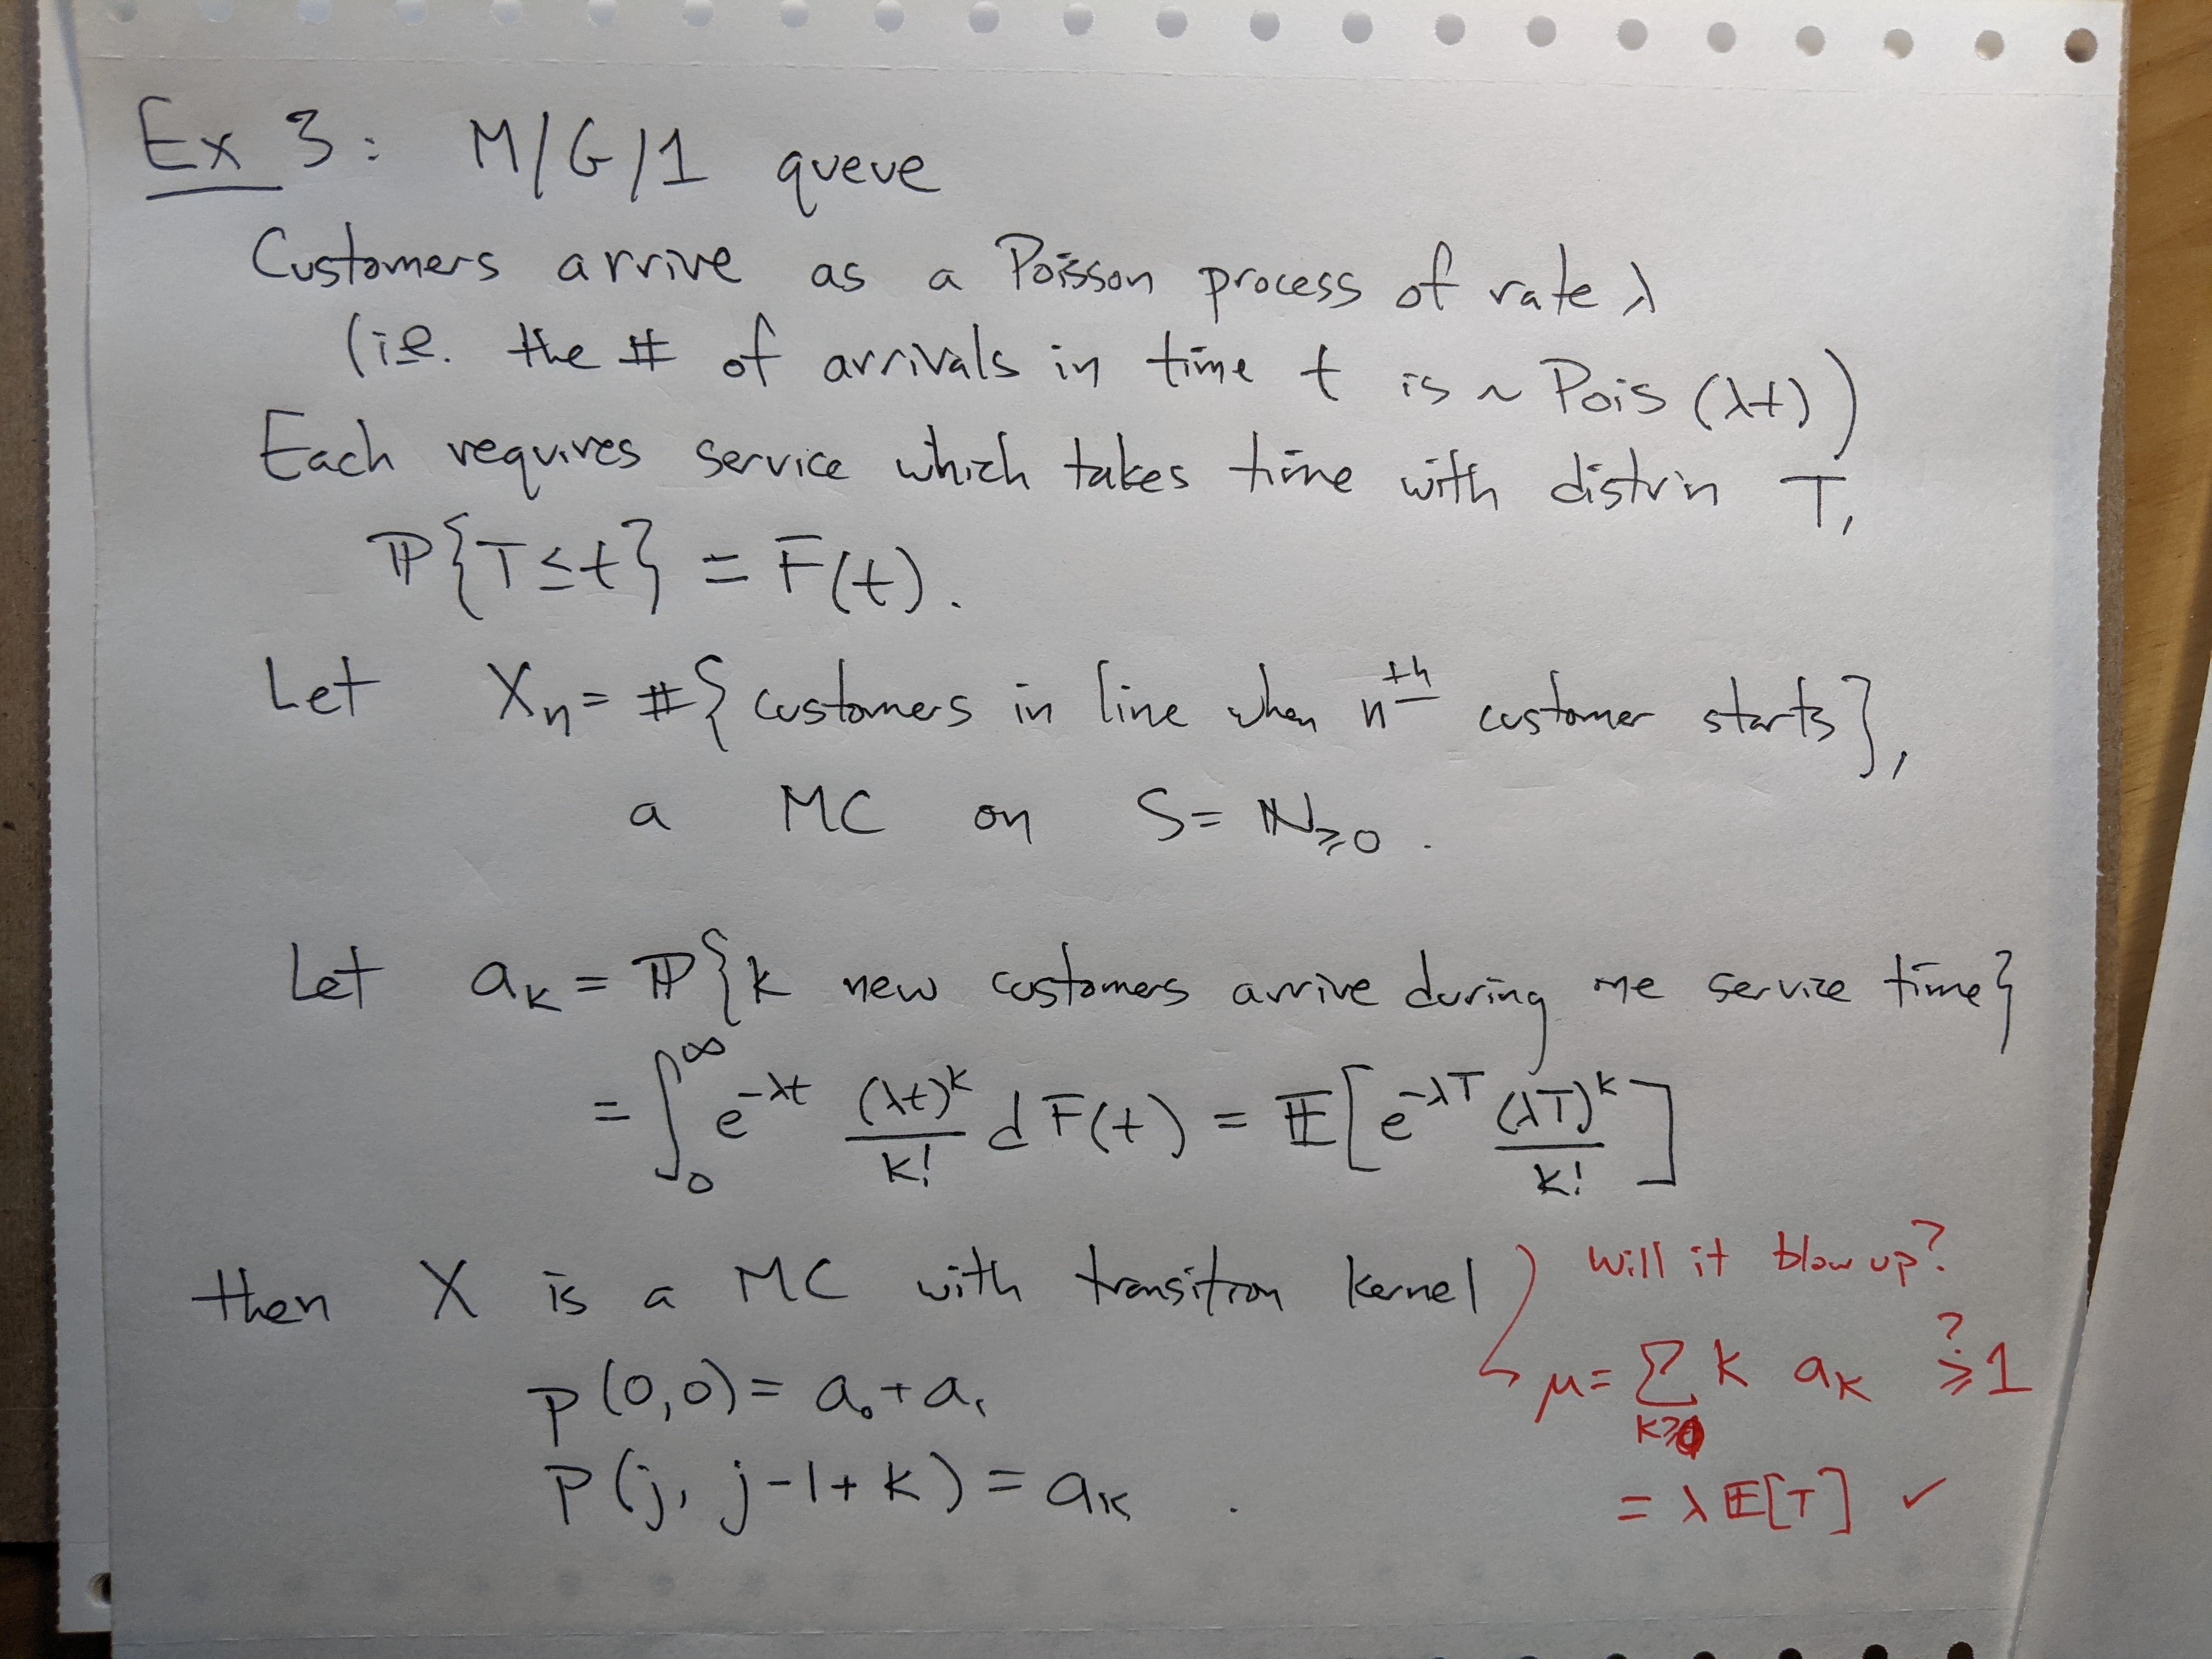 Ex 3: M/G/1 queue
Customers arrive as a Poisson process of rate λ
(i.e. the # of arrivals in time t is ~ Pois (λt))
Each requires service which takes time with distrin T,
ℙ{T≤t} = F(t).
Let Xₙ = #{customers in line when nᵗʰ customer starts},
a MC on S = ℕ≥0.
Let aₖ = ℙ{k new customers arrive during one service time}
= ∫₀^∞ e^{-λt} (λt)^k / k! dF(t) = 𝔼[e^{-λT} (λT)^k / k!]
then X is a MC with transition kernel
p(0,0) = a₀+a₁
p(j, j-1+k) = aₖ .
Will it blow up?
μ = Σ_{k≥0} k aₖ ≥? 1
= λ𝔼[T] ✓